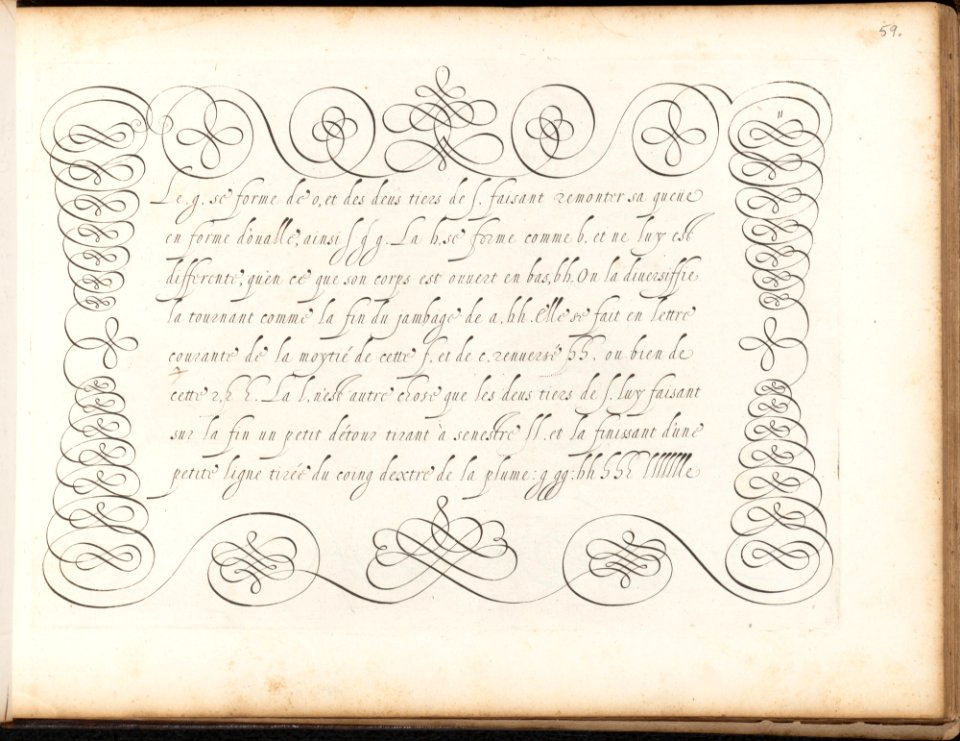 59.
Le .g. se forme de o, et des deus tiers de ſ. faisant remonter sa queüe
en forme d'oualle, ainsi ſ g g. La h. se forme comme b. et ne luy est
differente, qu'en ce que son corps est ouvert en bas, bh. On la diuersiffie
la tournant comme la fin du jambage de a, hh. elle se fait en lettre
courante de la moytié de cette ſ. et de c. renuersé hh. ou bien de
cette 2, 2 h. La l, n'est autre chose que les deus tiers de ſ. luy faisant
sur la fin un petit détour tirant à senestre ll. et la finissant d'une
petite ligne tirée du coing dextre de la plume: g gg: hh hh lllllle